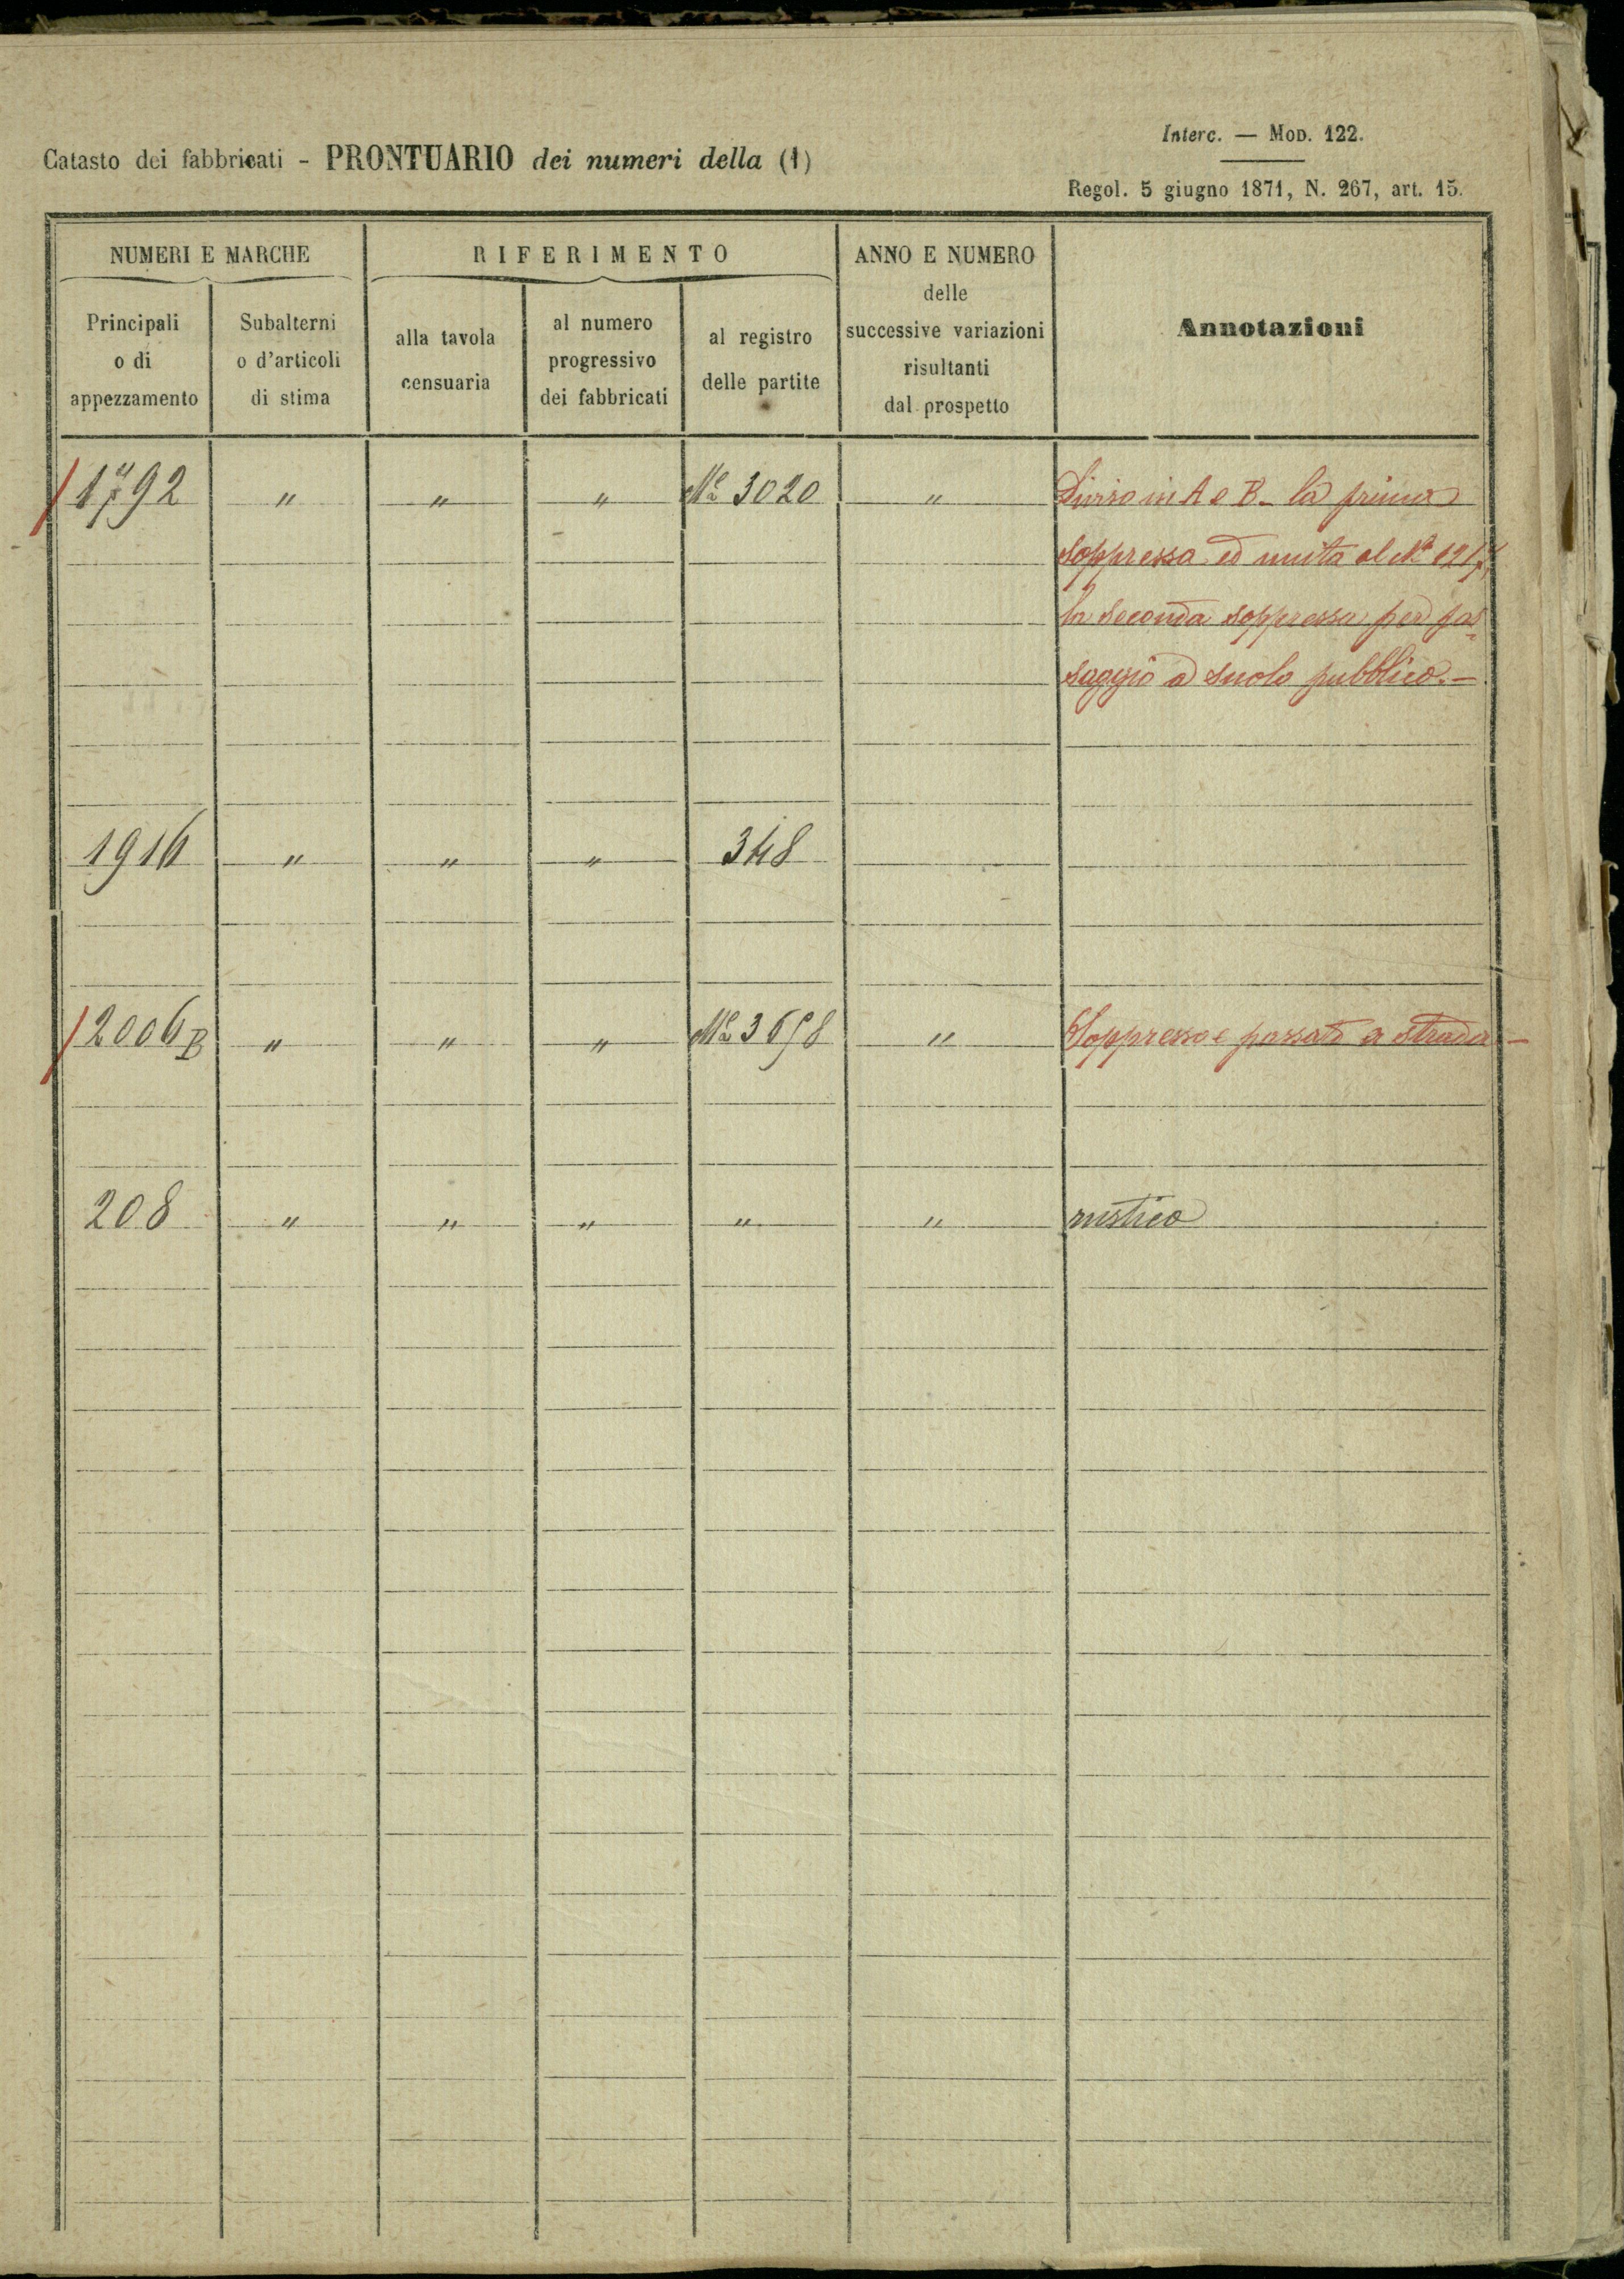 Interc. — MOD. 122.
Catasto dei fabbricati - PRONTUARIO dei numeri della (1)
Regol. 5 giugno 1871, N. 267, art. 15.
NUMERI E MARCHE
RIFERIMENTO
ANNO E NUMERO
delle
successive variazioni
risultanti
dal prospetto
Annotazioni
Principali
o di
appezzamento
Subalterni
o d'articoli
di stima
alla tavola
censuaria
al numero
progressivo
dei fabbricati
al registro
delle partite
1792 " " " Mª 3020 " Diviso in A e B - la prima
soppressa ed unita al Nº 1217,
la seconda soppressa per pas
saggio a suolo pubblico.-
1916 " " " 348
2006 B " " " Mª 3698 " Soppresso e passato a strada -
208 " " " " " rustico